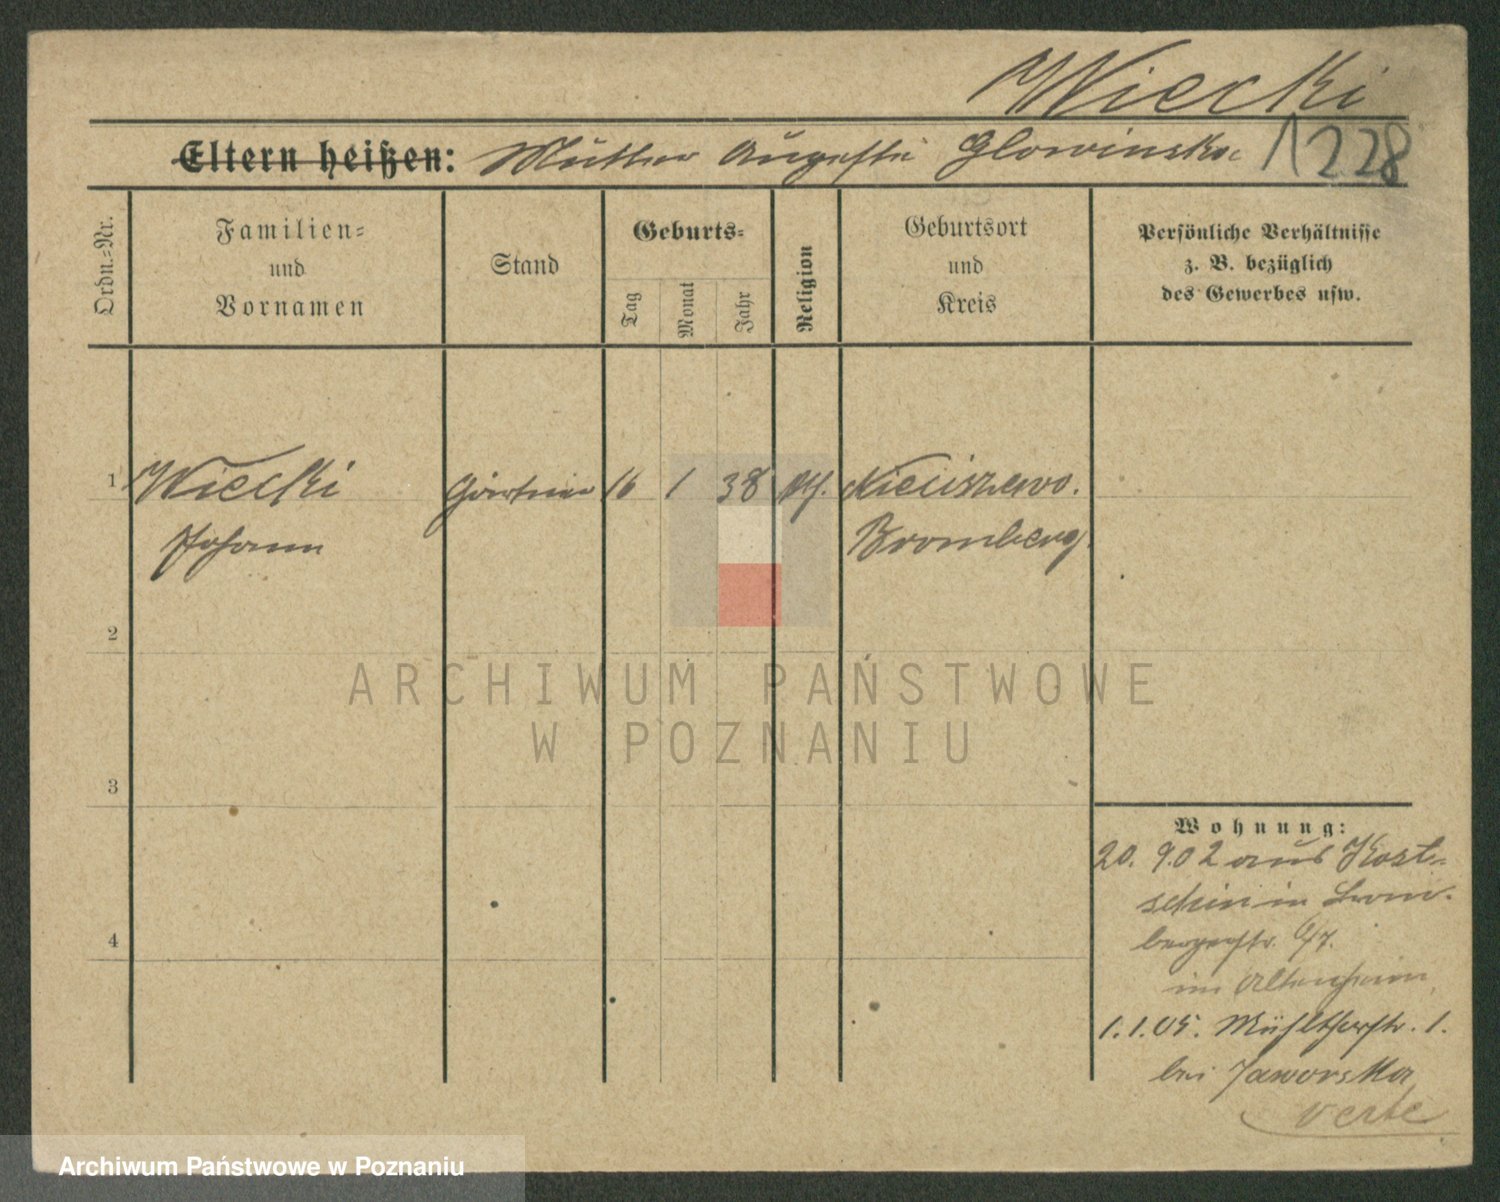 Wiecki
Eltern heißen: Mutter Auguste Glowinska 1228
Ordn.=Nr.
Familien=
und
Vornamen
Stand
Geburts=
Tag
Monat
Jahr
Religion
Geburtsort
und
Kreis
Persönliche Verhältnisse
z. B. bezüglich
des Gewerbes usw.
1 Wiecki Gärtner 16 1 38 kth. Nieciszewo.
Johann Bromberg.
2
3
4
Wohnung:
20. 9.02 aus Kost-
schin in Brom-
bergerstr. 6/7.
im Altenheim,
1.1.05. Mühlthorstr. 1.
bei Jaworska
verte
ARCHIWUM PAŃSTWOWE
W POZNANIU
Archiwum Państwowe w Poznaniu